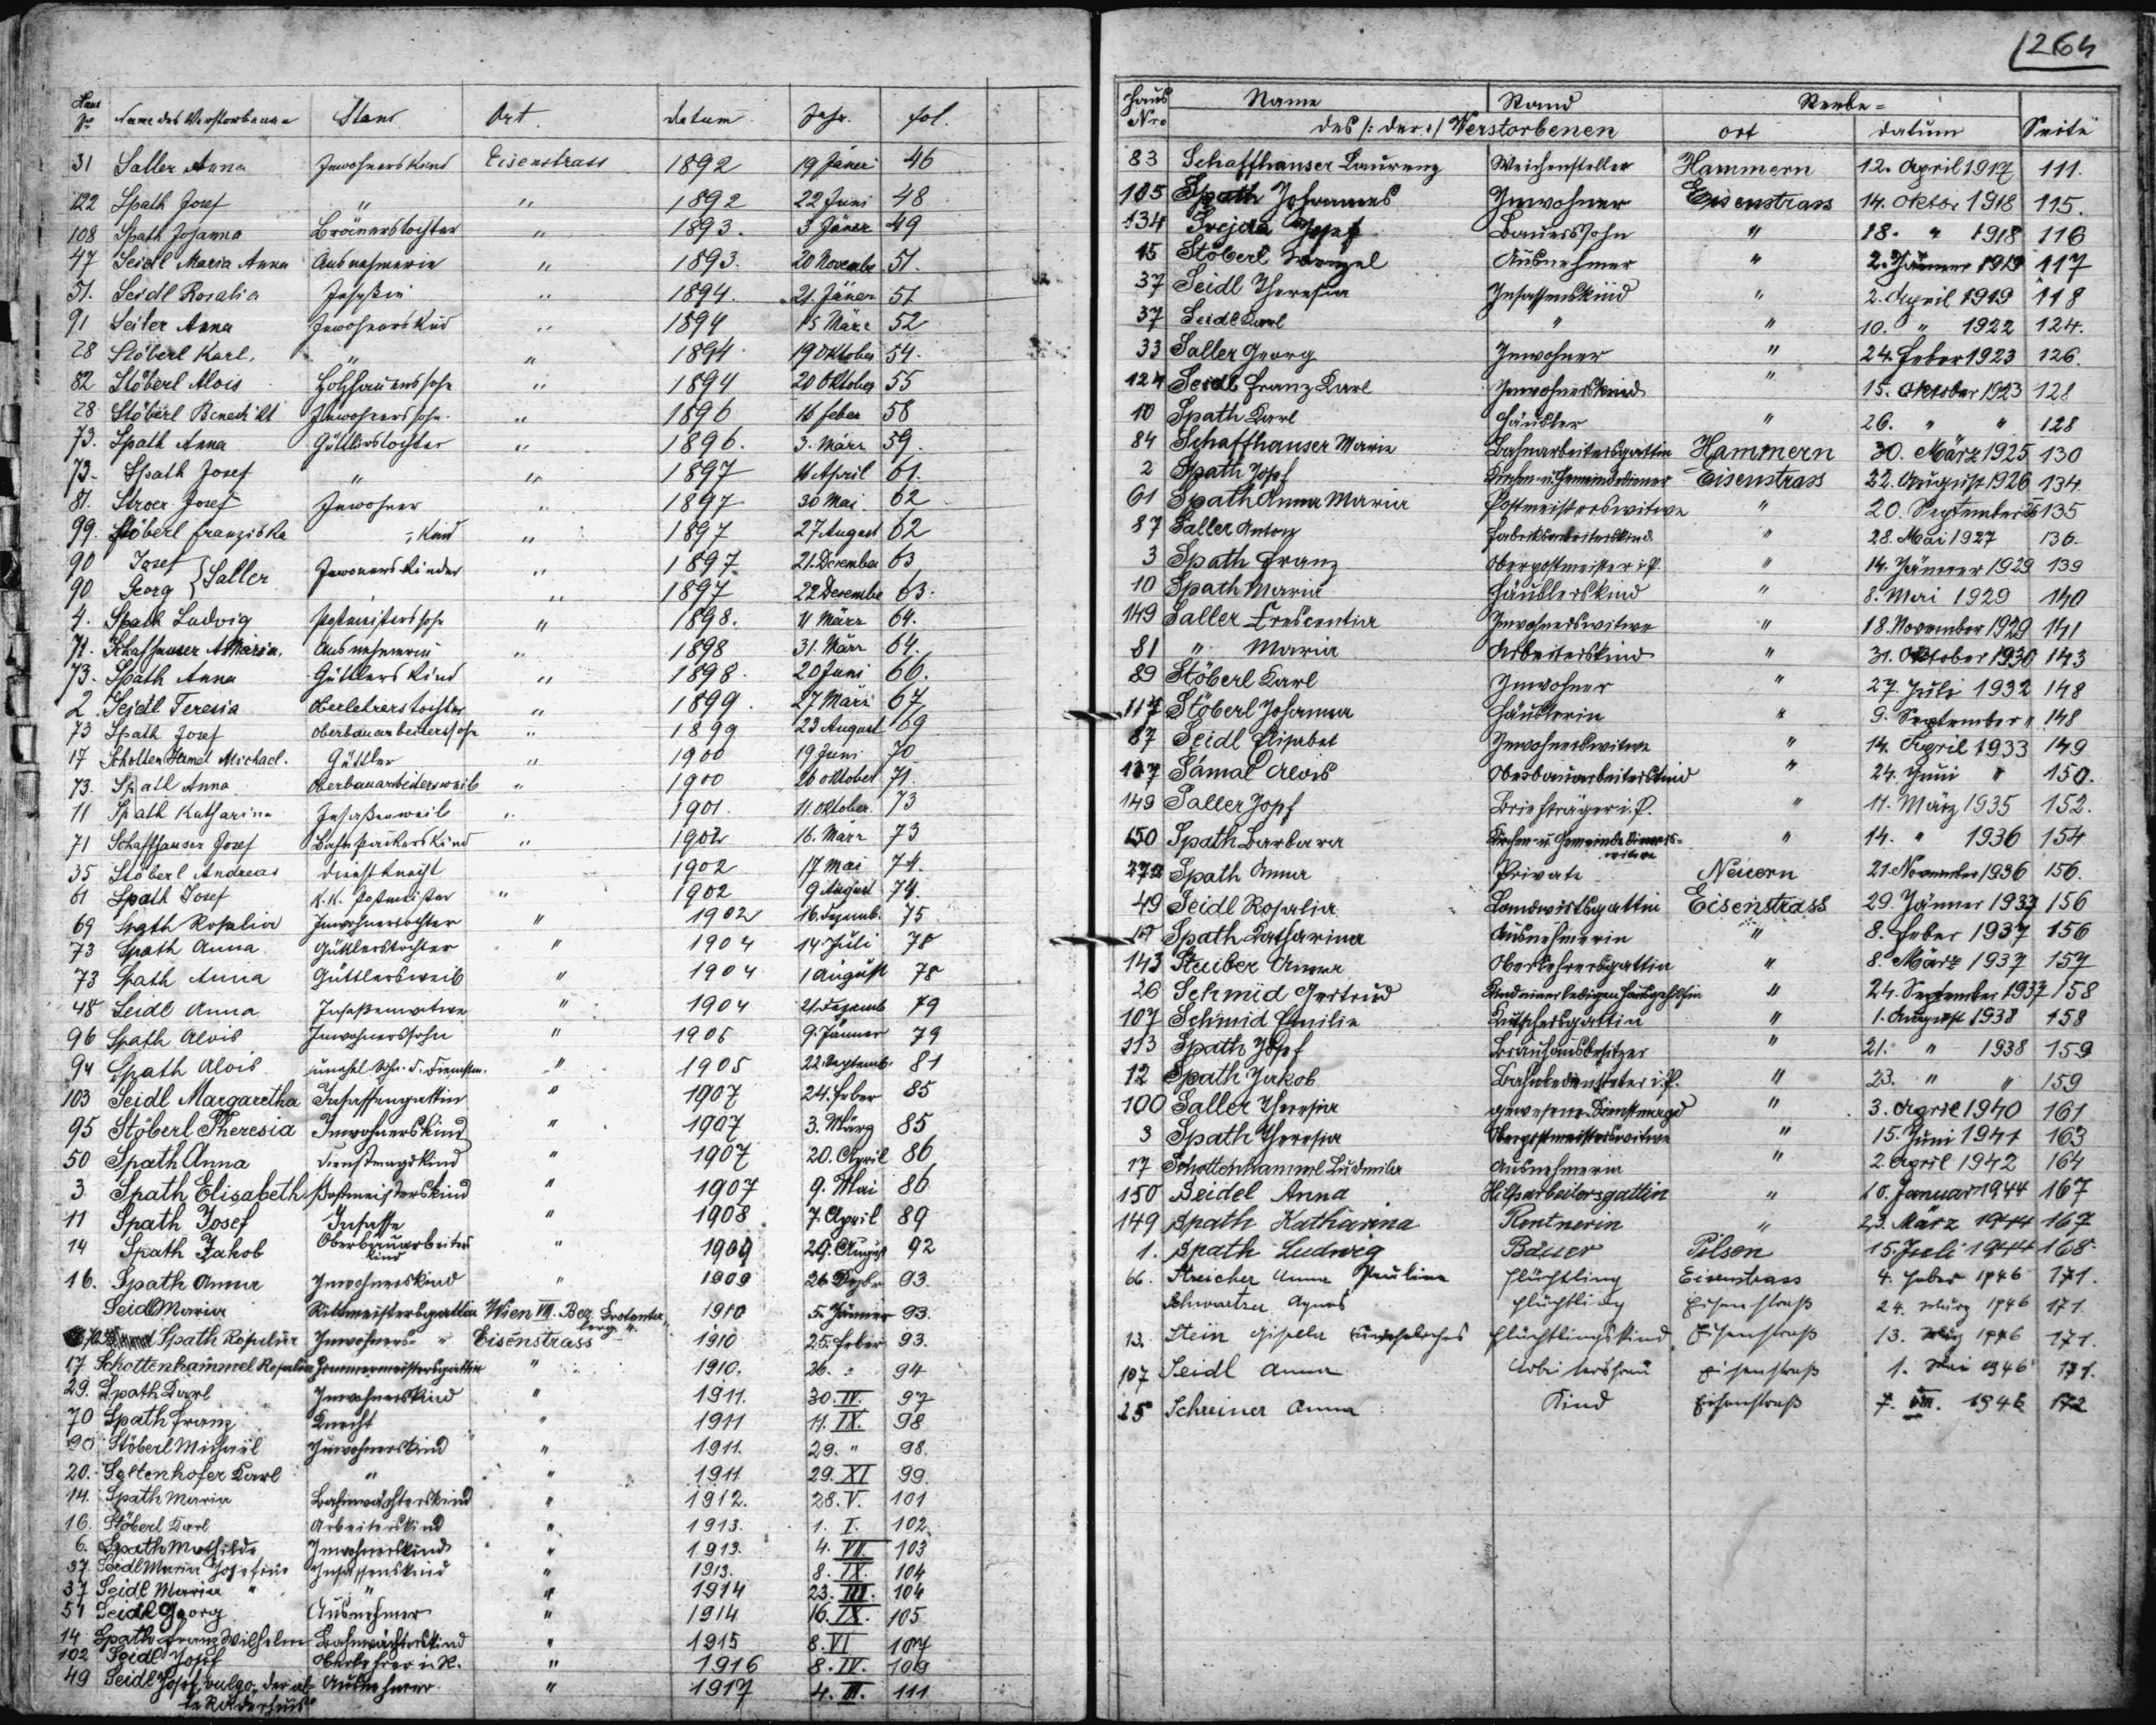 Haus Nro Name des Verstorbenen Stand Ort. Datum Jahr. fol.
31 Saller Anna Inwohners Kind Eisenstrass 1892 19 Jäner 46
122 Spath Josef " " 1892 22 Juni 48
108 Spath Johanna Bräuerstochter " 1893. 3 Jäner 49
47 Seidl Maria Anna Ausnehmerin " 1893. 20 Novembe 51.
51. Seidl Rosalia Insaßin " 1894. 21. Jäner 51
91 Seiler Anna Inwohners Kind " 1894 15 März 52
28 Stöberl Karl, " " 1894 19 Oktober 54.
82 Stöberl Alois Holzhauerssohn " 1894 20 Oktober 55
28 Stöberl Benedikt Inwohnerssohn. " 1896 16 feber 58
73. Spath Anna Güttlerstochter " 1896. 3. März 59.
73. Spath Josef " " 1897 16 April 61.
81. Stroer Josef Inwohner " 1897 30 Mai 62
99. Stöberl Franziska " Kind " 1897 27 August 62
90 Josef } Saller Inwoners Kinder " 1897. 21. Dezember 63
90 Georg " 1897 22 Dezembe 63.
4. Spath Ludwig Postmeisterssohn " 1898. 11 März 64.
71. Schafhauser A Maria. Ausnehmerin " 1898 31. März 64.
73. Spath Anna Güttlers Kind " 1898. 20 Juni 66.
2 Seidl Teresia Oberlehrerstochter " 1899. 27 März 67
73 Spath Josef Oberbauarbeiterssohn " 1899 23 August 69
17 Schotten Hamel Michael. Güttler " 1900 19 Juni 70
73. Spath Anna Oberbauarbeitersweib " 1900 26 oktober 71.
11 Spath Katharina Insaßenweib " 1901. 11. Oktober. 73
71 Schaffhauser Josef Bahnpackers Kind " 1902 16. März 73
35 Stöberl Andreas Dienstknecht 1902 17 Mai 74.
61 Spath Josef K. K. Postmeister " 1902 9 August 74.
69 Spath Rosalia Inwohnerstochter " 1902 16. Dezemb. 75
73 Spath Anna Güttlerstochter " 1904 14 Juli 78
73 Spath Anna Güttlersweib " 1904 1 August 78
48 Seidl Anna Insaßenwitwe " 1904 21. Dezemb 79
96 Spath Alois Inwohnerssohn " 1905 9. Jänner 79
94 Spath Alois unehel. Sohn. d. Dienstm. " 1905 22. Septemb. 81
103 Seidl Margaretha Insassengattin " 1907 24. Feber 85
95 Stöberl Theresia Inwohnerskind " 1907 3. März 85
50 Spath Anna Dienstmagdkind " 1907 20. April 86
3 Spath Elisabeth Postmeisterskind " 1907 9. Mai 86
11 Spath Josef Insasse " 1908 7. April 89
14 Spath Jakob Oberbauarbeiters " 1909 29. August 92
kind
16. Spath Anna Inwohnerskind " 1909 26 Dezbr 93.
Seidl Maria Rittmeistersgattin Wien VIII. Bez. 1910 5. Jänner 93.
Spath Rosalia Inwohners- " Eisenstrass 1910 25. Feber 93.
17 Schottenhammel Rosalia Hammermeistersgattin " 1910. 26. " 94
29. Spath Karl Inwohnerskind " 1911. 30. IV. 97
70 Spath Franz Knecht " 1911 11. IX. 98
90 Stöberl Michael Inwohnerskind " 1911. 29. " 98.
20. Seltenhofer Karl " " 1911. 29. XI 99.
14. Spath Maria Bahnwächterskind " 1912. 28. V. 101
16. Stöberl Karl Arbeiterskind " 1913. 1. I. 102
6. Spath Mathilde Inwohnerskind " 1913. 4. VII. 103
37. Seidl Maria Josefine Insassenskind " 1913. 8. IX. 104
37 Seidl Maria " " " 1914 23. III. 104
51 Seidl Georg Ausnehmer " 1914 16. IX. 105
14 Spath Franz Wilhelm Bahnwächterskind " 1915 8. VI 107
102 Seidl Josef Oberlehrer i. R. " 1916 8. IV. 109
49 Seidl Josef, vulgo der al- Ausnehmer " 1917 4. III. 111
264
Haus Nro Name Stand Sterbe- Seite
des /: der :/ Verstorbenen ort datum
83 Schaffhauser Laurenz Weichensteller Hammern 12. April 1917 111.
105 Spath Johannes Inwohner Eisenstrass 14. Oktor 1918 115.
134 Srejda Josef Bauerssohn " 18. " 1918 116
15 Stöberl Wenzel Ausnehmer " 2. Jänner 1919 117
37 Seidl Theresia Insassenskind " 2. April 1919 118
37 Seidl Karl " " 10. " 1922 124.
33 Saller Georg Inwohner " 24. Feber 1923 126
124 Seidl Franz Karl Inwohnerskind " 15. Oktober 1923 128
10 Spath Karl Häusler " 26. " " 128
84 Schaffhauser Marie Bahnarbeitersgattin Hammern 30. März 1925 130
2 Spath Josef Kirchen- u. Gemeindediener Eisenstrass 22. August 1926 134
61 Spath Anna Maria Postmeisterswitwe " 20. September 26 135
87 Saller Anton Fabriksarbeiterskind " 28. Mai 1927 136.
3 Spath Franz Oberpostmeister i. P. " 14. Jänner 1929 139
10 Spath Maria Häuslerskind " 8. Mai 1929 140
149 Saller Crescentia Inwohnerswitwe " 18. November 1929 141
81 " Maria Arbeiterskind " 31. Oktober 1930 143
89 Stöberl Karl Inwohner " 27. Juli 1932 148
117 Stöberl Johanna Häuslerin " 9. September " 148
87 Seidl Elisabet Inwohnerswitwe " 14. April 1933 149
Sámal Alois Oberbauarbeiterskind " 24. Juni " 150.
149 Saller Josef Briefträger i. P. " 11. März 1935 152.
150 Spath Barbara Kirchen- u. Gemeindedieners- " 14. " 1936 154
witwe
272 Spath Anna Private Neuern 21. November 1936 156.
49 Seidl Rosalia Landwirtsgattin Eisenstrass 29. Jänner 1937 156
Spath Katharina Ausnehmerin " 8. Feber 1937 156
143 Stuiber Anna Oberlehrersgattin " 8. März 1937 157
26 Schmid Gertrud Kind einer ledigen Hausgehilfin " 24. September 1937 158
107 Schmid Emilie Kutschersgattin " 1. August 1938 158
113 Spath Josef Brauhausbesitzer " 21. " 1938 159
12 Spath Jakob Bahnbediensteter i. P. " 23. " " 159
100 Saller Theresia gewesene Dienstmagd " 3. April 1940 161
3 Spath Theresia Oberpostmeisterswitwe " 15. Juni 1941 163
17 Schottenhamml Ludmila Ausnehmerin " 2. April 1942 164
150 Seidel Anna Hilfsarbeitersgattin " 10. Januar 1944 167
149 Spath Katharina Rentnerin " 23. März 1944 167
1. Spath Ludwig Bauer Pilsen 15. Juli 1944 168
66. Streicher Anna Pauline Flüchtling Eisenstrass 4. Feber 1946 171.
Schwartzer Agnes Flüchtling Eisenstraß 24. März 1946 171.
13. Stein Gisela uneheliches Flüchtlingskind Eisenstraß 13. März 1946 171.
107 Seidl Anna Arbeitersfrau Eisenstraß 1. Mai 1946 171.
25 Schreiner Anna Kind Eisenstraß 7. VIII. 1946 172